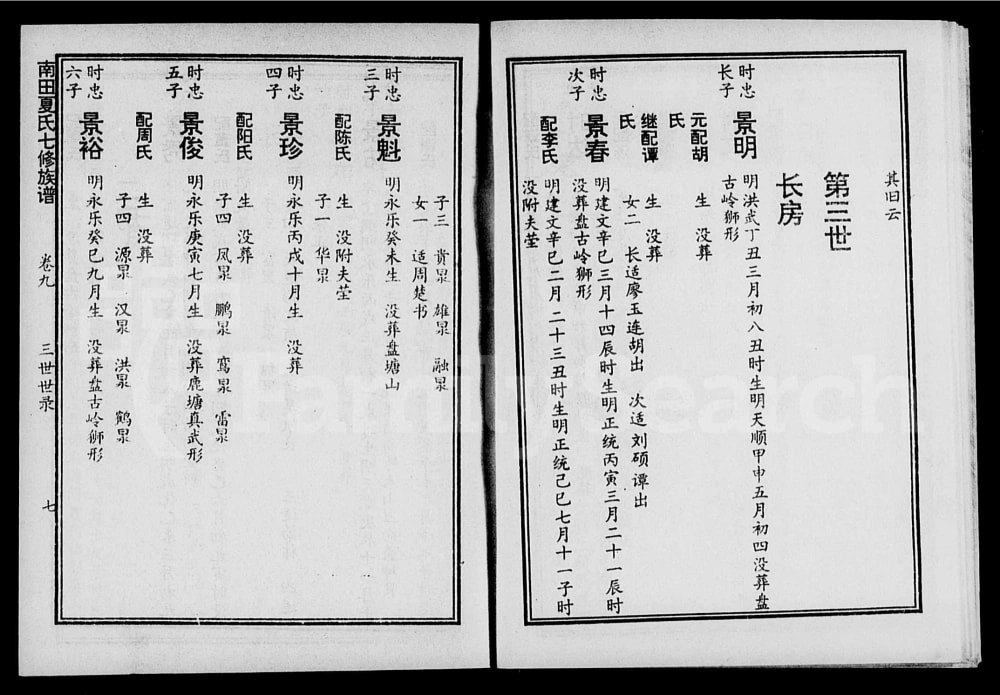 其旧云
第三世
长房
时忠长子
景明
明洪武丁丑三月初八丑时生明天顺甲申五月初四没葬盘
古岭狮形
元配胡氏
生 没葬
继配谭氏
生 没葬
女二 长适廖玉连胡出 次适刘硕谭出
时忠次子
景春
明建文辛巳三月十四辰时生明正统丙寅三月二十一辰时
没葬盘古岭狮形
配李氏
明建文辛巳二月二十三丑时生明正统己巳七月十一子时
没附夫茔
子三 贵杲 雄杲 融杲
女一 适周楚书
时忠三子
景魁
明永乐癸未生 没葬盘塘山
配陈氏
生 没附夫茔
子一 华杲
时忠四子
景珍
明永乐丙戌十月生 没葬
配阳氏
生 没葬
子四 凤杲 鹏杲 鸾杲 雷杲
时忠五子
景俊
明永乐庚寅七月生 没葬鹿塘真武形
配周氏
生 没葬
子四 源杲 汉杲 洪杲 鹤杲
时忠六子
景裕
明永乐癸巳九月生 没葬盘古岭狮形
南田夏氏七修族谱
卷九
三世世录
七
FamilySearch